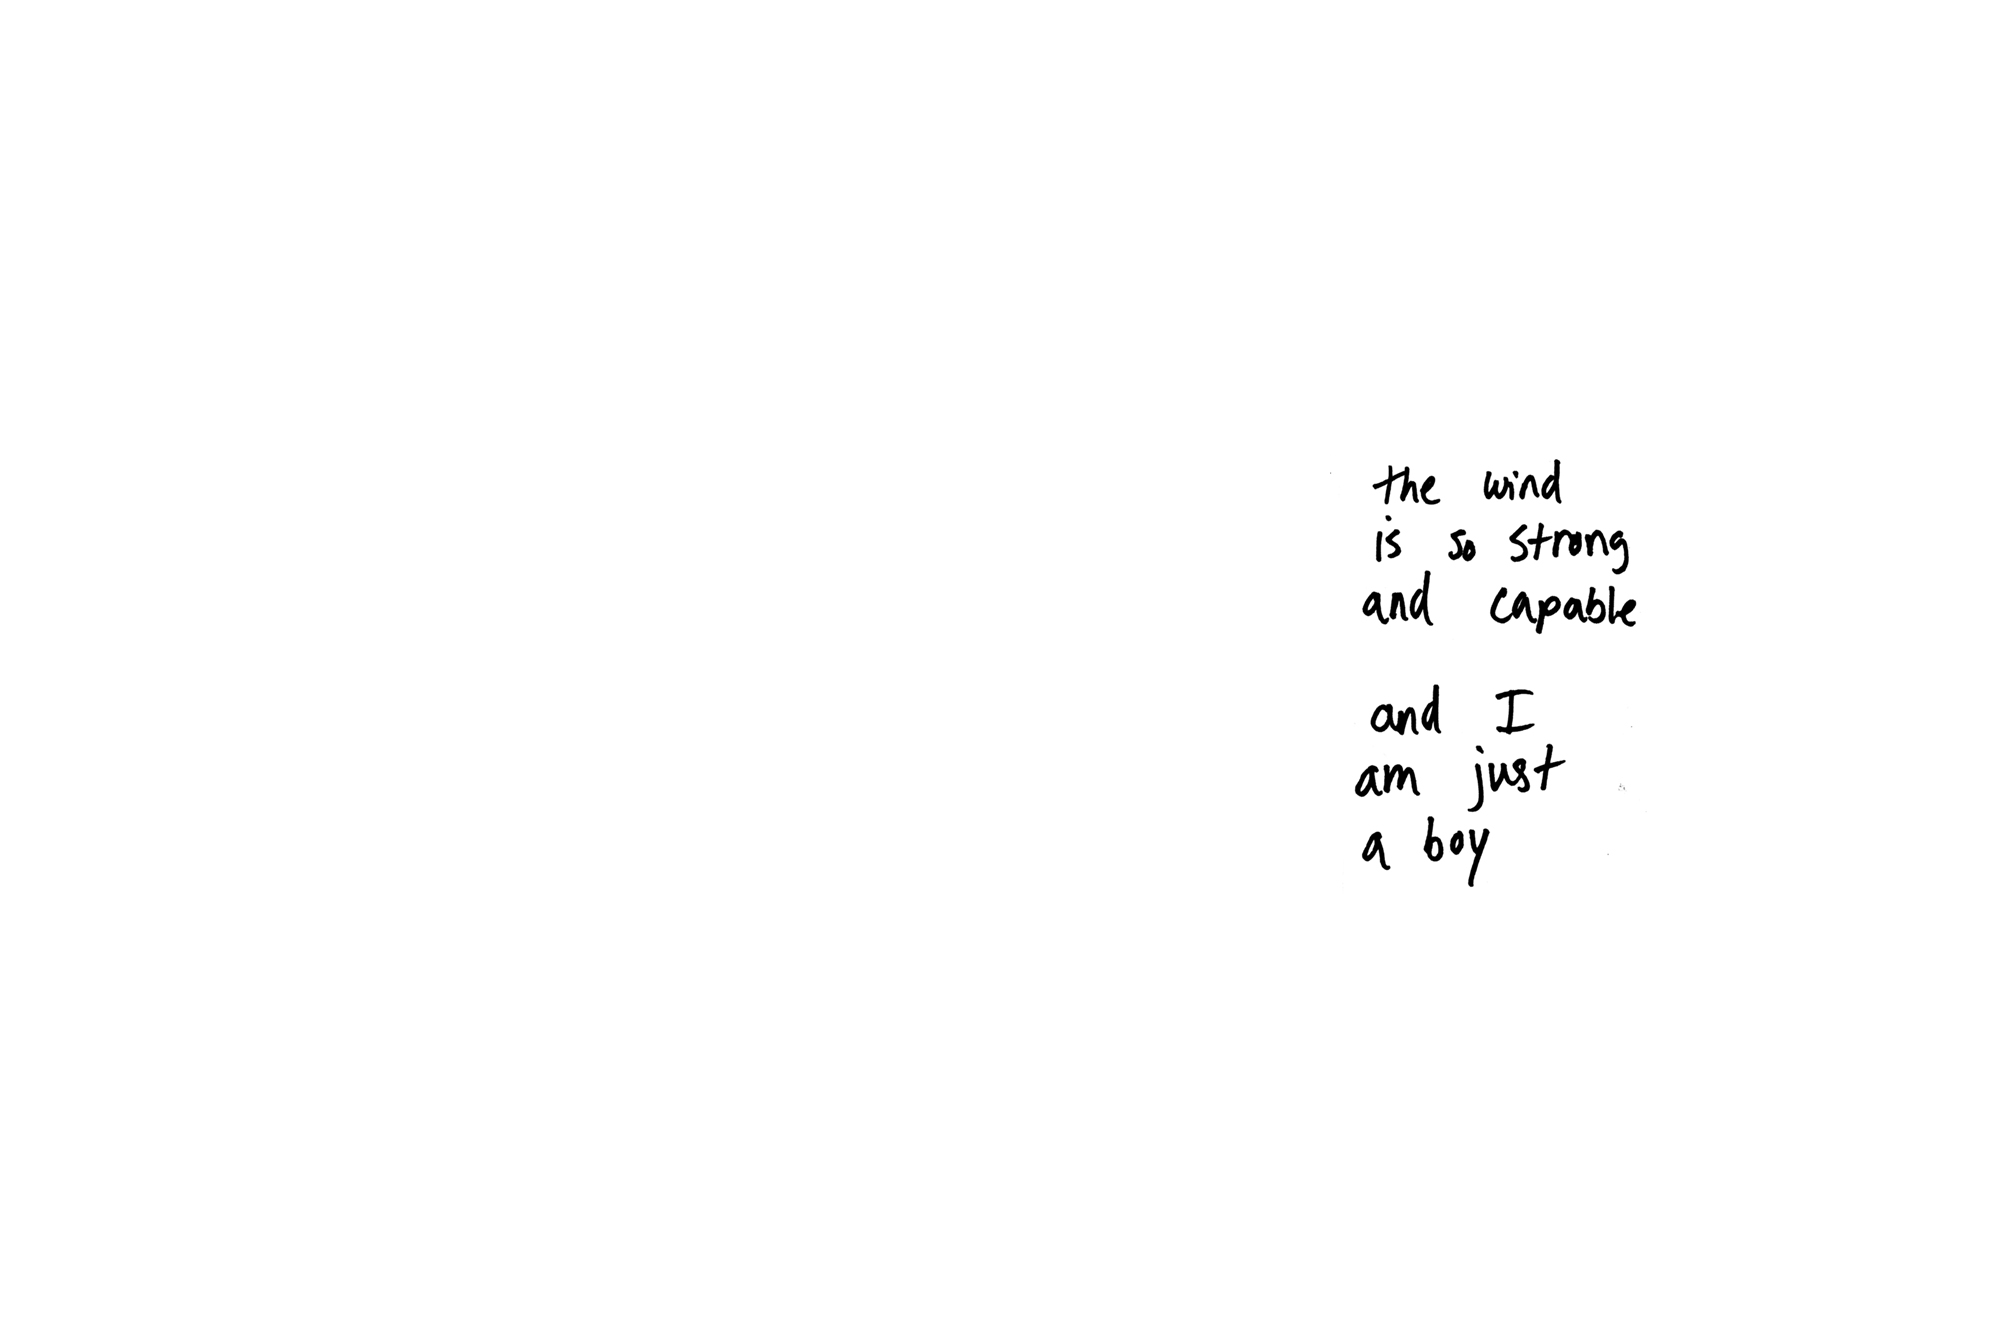 the wind
is so strong
and capable
and I
am just
a boy